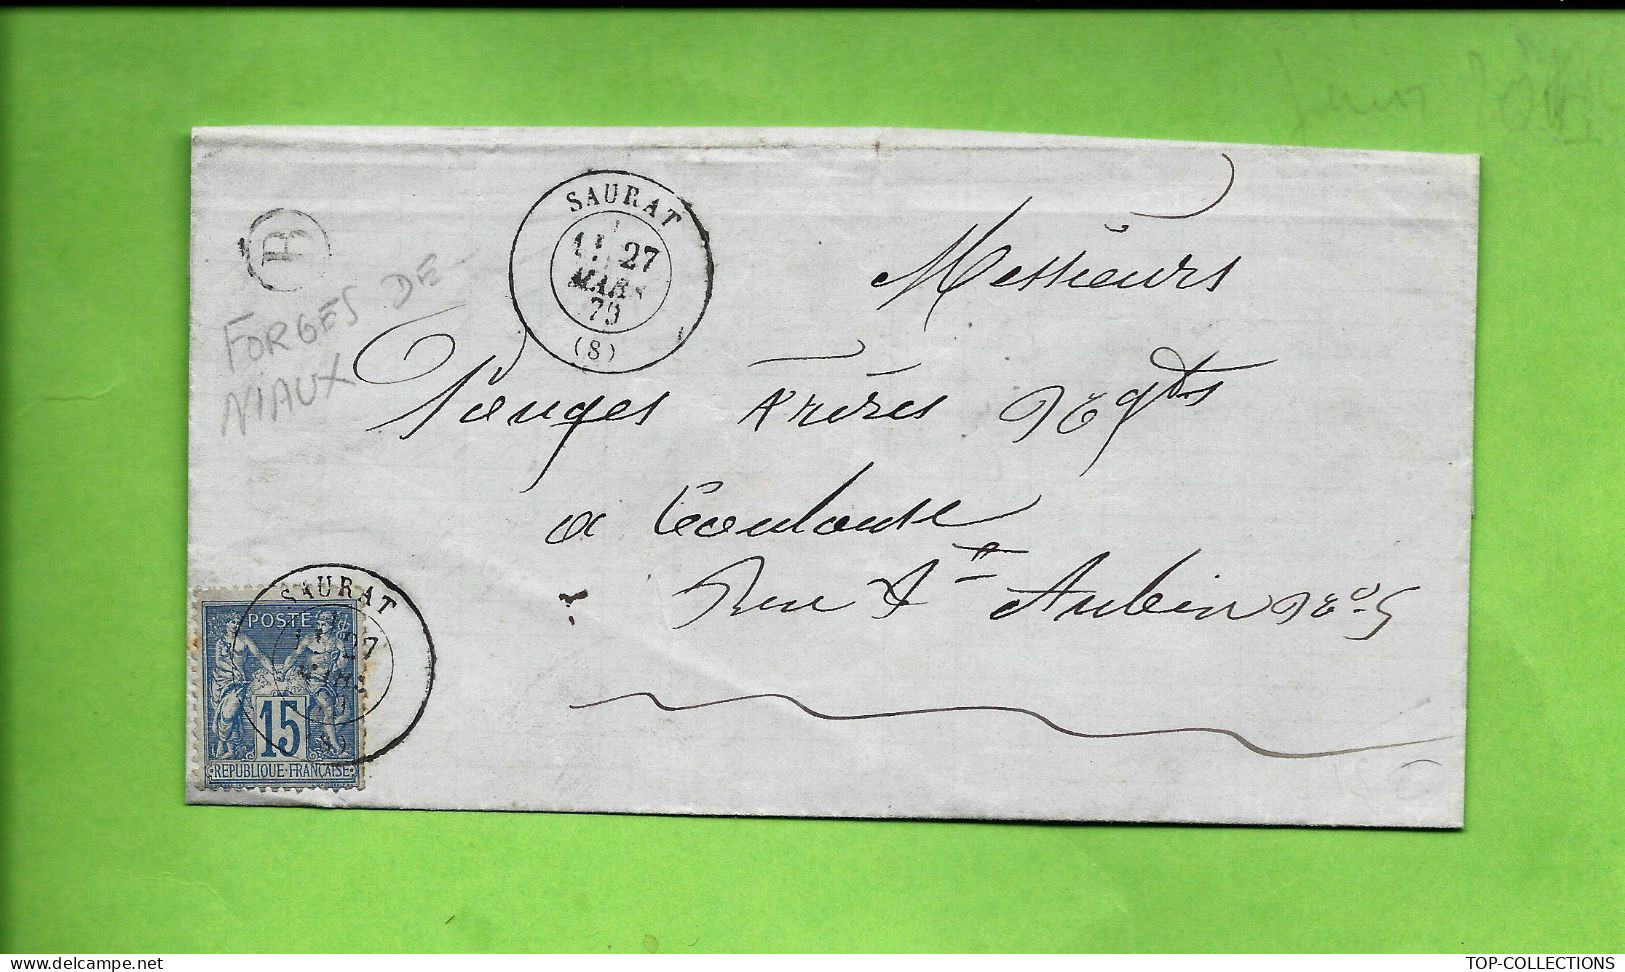 B
FORGES DE
NIAUX
SAURAT
27
MARS
79
(8)
Messieurs
Frères Négts
a Toulouse
Rue St Aubin No 5
SAURAT
27
POSTE
15
REPUBLIQUE FRANÇAISE
TOP-COLLECTIONS
delcampe.net